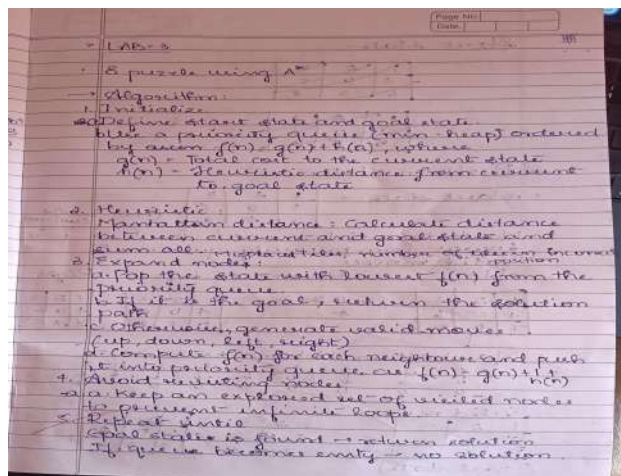 Page No.
Date
→ LAB-3
• 8 puzzle using A*
→ Algorithm:
1. Initialize
a) Define start state and goal state.
b) Use a priority queue (min-heap) ordered
by f(n) = g(n) + h(n), where
g(n) = Total cost to the current state
h(n) = Heuristic distance from current
to goal state
2. Heuristic:
Manhattan distance: Calculate distance
between current and goal state and
sum all. Misplaced tiles: number of tiles in incorrect
position
3. Expand nodes:
a. Pop the state with lowest f(n) from the
priority queue.
b. If it is the goal, return the solution
path
c. Otherwise, generate valid moves
(up, down, left, right)
d. Compute f(n) for each neighbour and push
it into priority queue as f(n) = g(n) + 1 +
h(n)
4. Avoid revisiting nodes
a. Keep an explored set of visited nodes
to prevent infinite loops.
5. Repeat until
Goal state is found → return solution
If queue becomes emty → no solution.